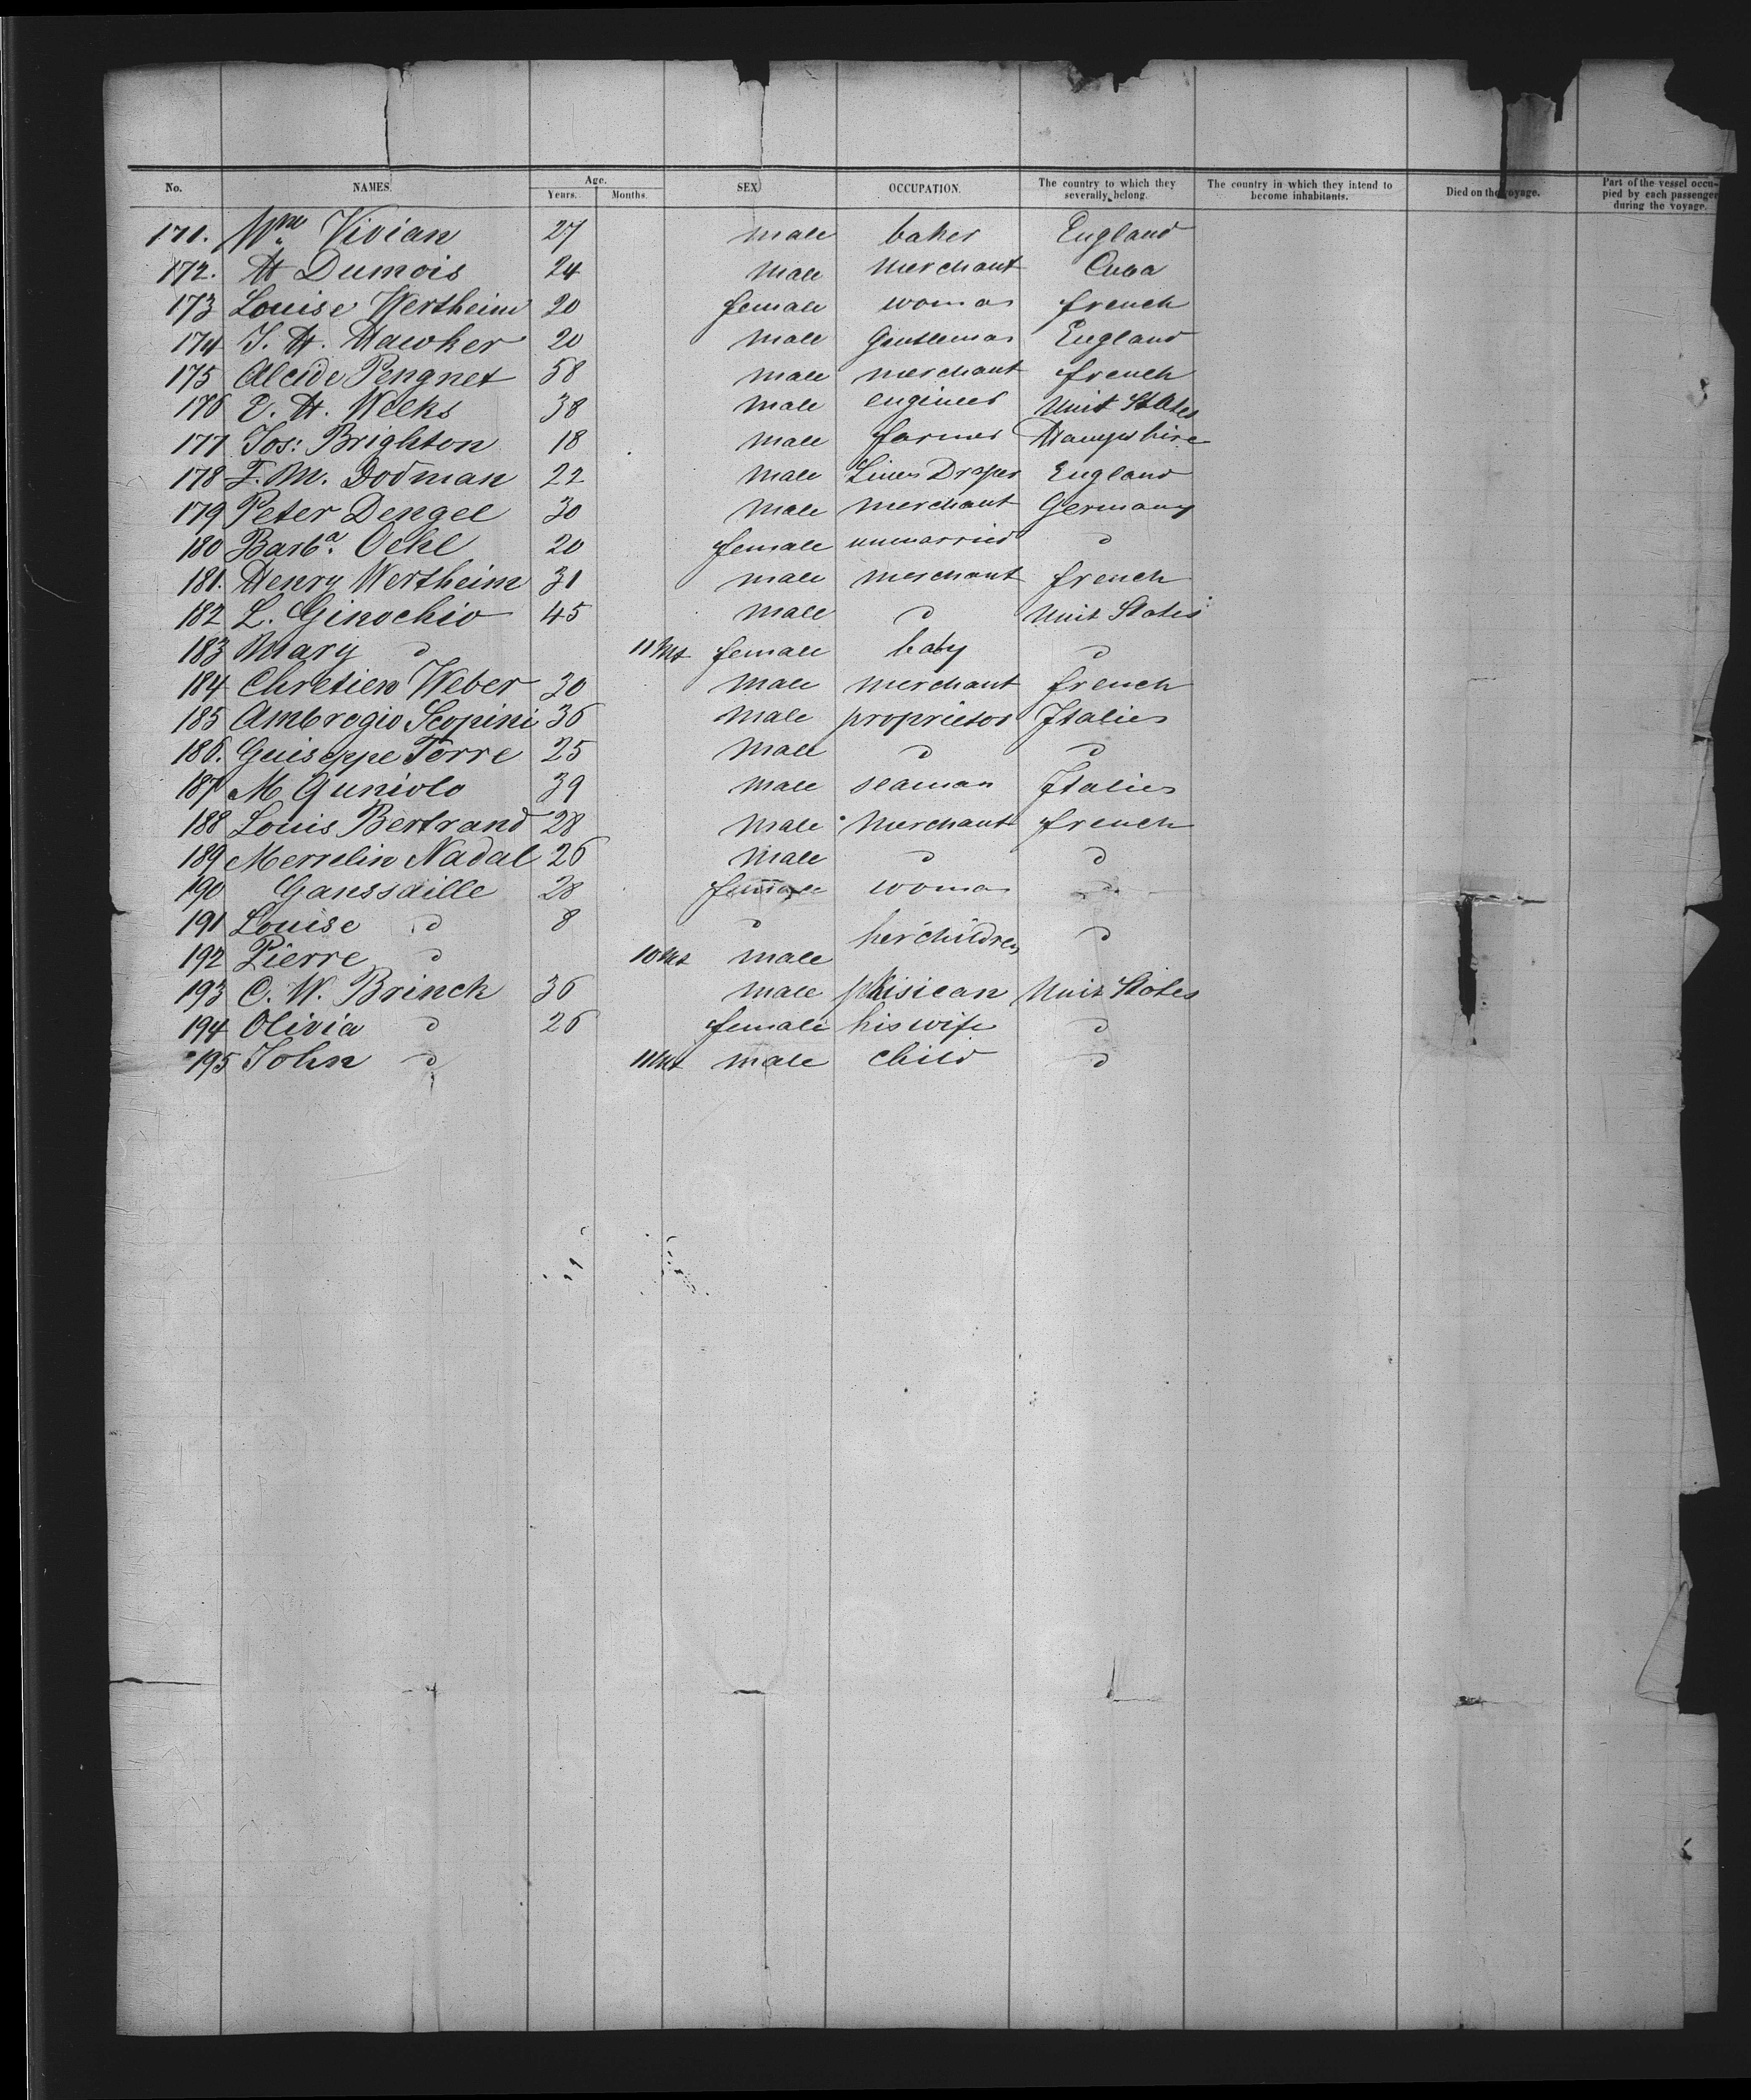 No. NAMES. Age. Years. Months. SEX. OCCUPATION. The country to which they severally belong. The country in which they intend to become inhabitants. Died on the voyage. Part of the vessel occupied by each passenger during the voyage.
171. Wm Vivian 27 male baker England
172. H Dumois 24 male merchant Cuba
173 Louise Wertheim 20 female woman french
174 J. H. Hawker 20 male Gentleman England
175 Alcide Pengnet 58 male merchant french
176 E. H. Weeks 38 male engineer Unit States
177 Jos: Brighton 18 male farmer Hampshire
178 F. M. Dodman 22 male Linen Draper England
179 Peter Dengel 30 male merchant Germany
180 Barba. Oehl 20 female unmarried d
181. Henry Wertheim 31 male merchant french
182 L. Ginochio 45 male d Unit States
183 Mary d 11 Mt female baby d
184 Chretien Weber 30 male merchant french
185 Ambrogio Scopini 36 male proprietor Italien
186. Guiseppe Torre 25 male d d
187 M Guniolo 39 male seaman Italien
188 Louis Bertrand 28 male merchant french
189 Merrelin Nadal 26 male d d
190 Ganssaille 28 female woman d
191 Louise d 8 d her children d
192 Pierre d 10 Mt male
193 C. W. Brinck 36 male phisican Unit States
194 Olivia d 26 female his wife d
195 John d 11 Mt male child d